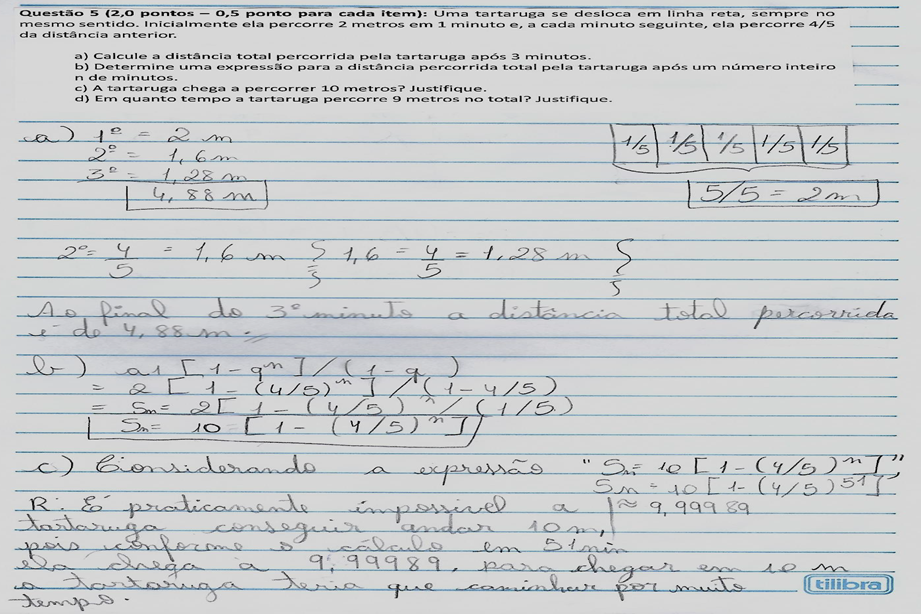 Questão 5 (2,0 pontos – 0,5 ponto para cada item): Uma tartaruga se desloca em linha reta, sempre no
mesmo sentido. Inicialmente ela percorre 2 metros em 1 minuto e, a cada minuto seguinte, ela percorre 4/5
da distância anterior.
a) Calcule a distância total percorrida pela tartaruga após 3 minutos.
b) Determine uma expressão para a distância percorrida total pela tartaruga após um número inteiro
n de minutos.
c) A tartaruga chega a percorrer 10 metros? Justifique.
d) Em quanto tempo a tartaruga percorre 9 metros no total? Justifique.
a) 1º = 2 m
2º = 1,6 m
3º = 1,28 m
4,88 m
1/5 1/5 1/5 1/5 1/5
5/5 = 2 m
2º = 4/5 = 1,6 m 1,6 = 4/5 = 1,28 m
Ao final do 3º minuto a distância total percorrida
é de 4,88 m.
b) a1 [1 - q^n] / (1 - q)
= 2 [1 - (4/5)^n] / (1 - 4/5)
= Sn = 2 [1 - (4/5)^n / (1/5)
Sn = 10 = [1 - (4/5)^n]
c) Considerando a expressão "Sn = 10 [1 - (4/5)^n]",
Sn = 10 [1 - (4/5)^51]
≈ 9,99989
R: É praticamente impossivel a
tartaruga conseguir andar 10 m,
pois conforme o cálculo em 51 min
ela chega à 9,99989, para chegar em 10 m
a tartaruga teria que caminhar por muito
tempo.
tilibra